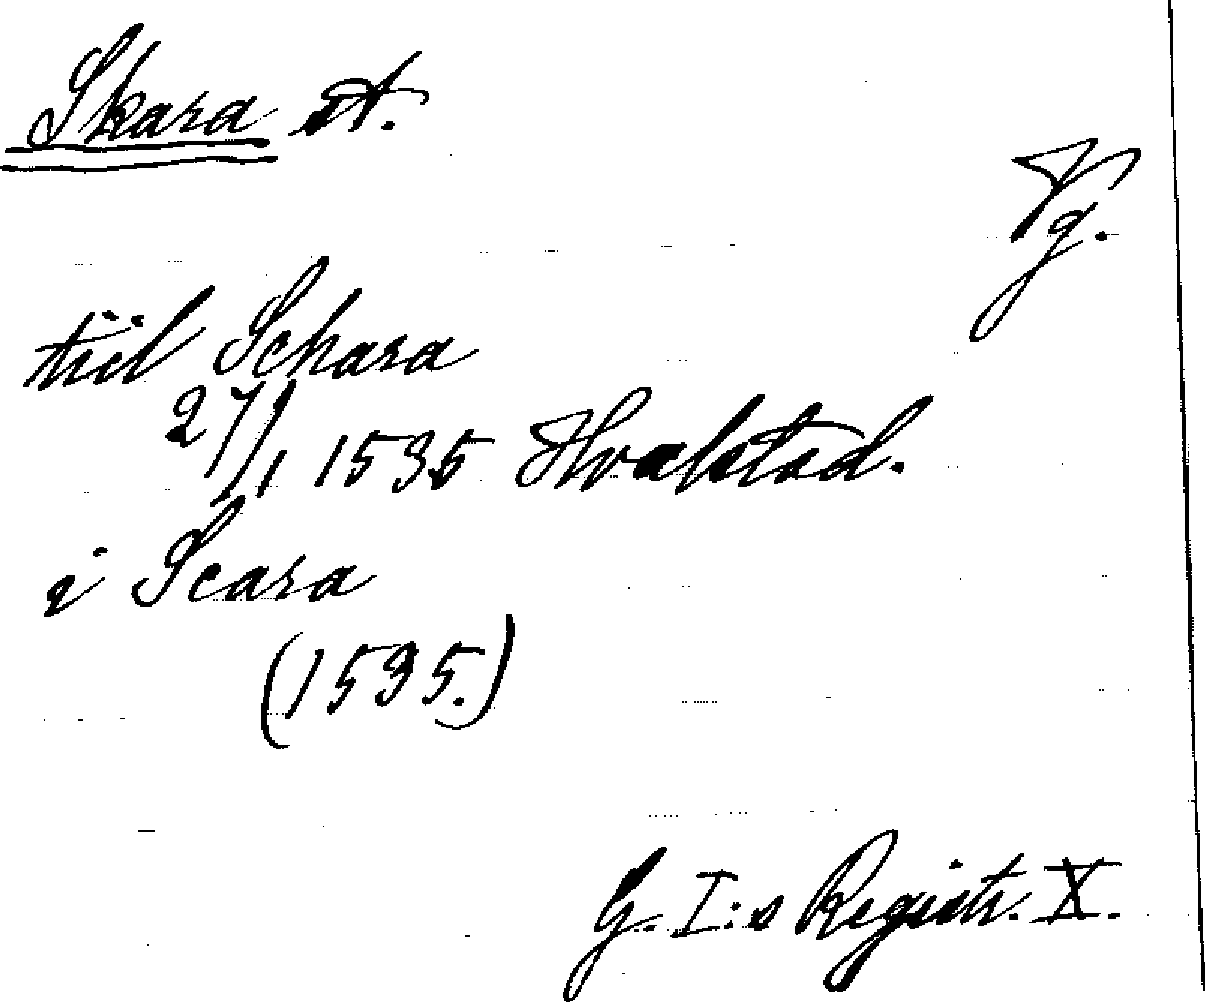 Skara st.
Vg.
tiil Schara
27/1 1535 Hvalstad.
i Scara
(1535.)
G. I:s Registr. X.